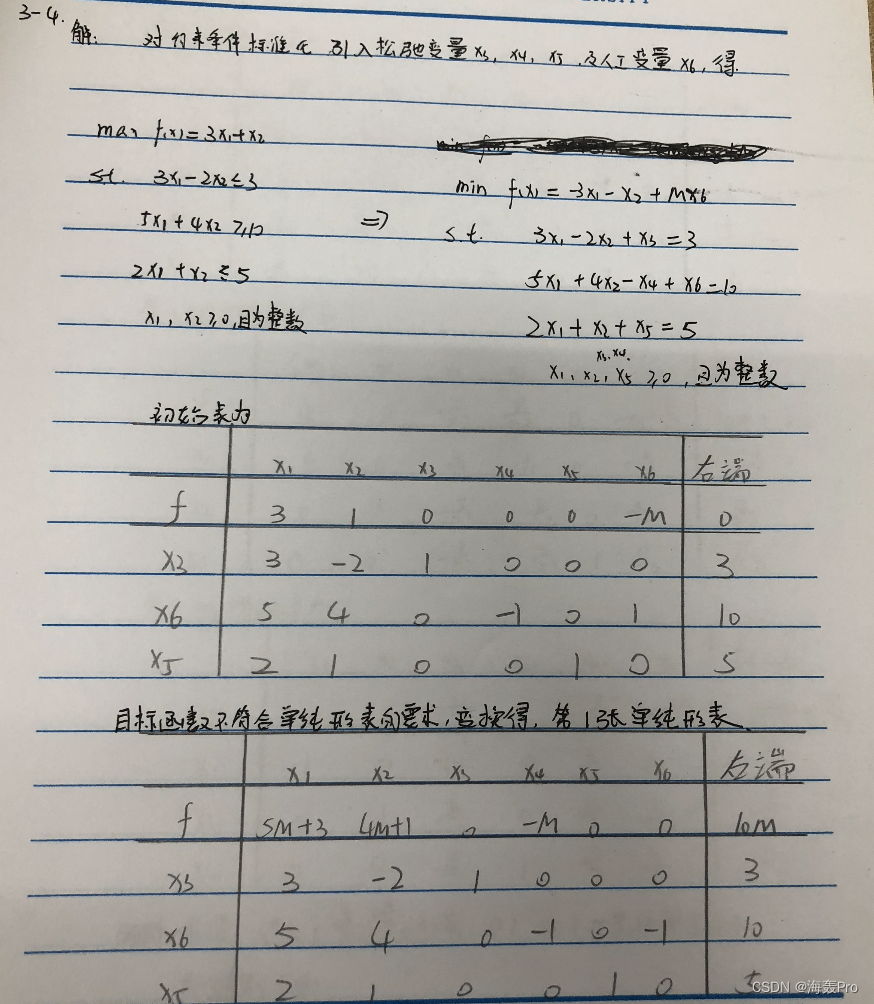 3-4.
解: 对约束条件标准化 引入松弛变量x₃, x₄, x₅ 及人工变量 x₆, 得
max f(x)=3x₁+x₂
s.t. 3x₁-2x₂≤3
min f(x)=-3x₁-x₂+Mx₆
5x₁+4x₂≥10 ⇒ s.t. 3x₁-2x₂+x₃=3
2x₁+x₂≤5 5x₁+4x₂-x₄+x₆=10
x₁, x₂≥0,且为整数 2x₁+x₂+x₅=5
x₃,x₄.
x₁, x₂, x₅≥0, 且为整数
初始表为
x₁ x₂ x₃ x₄ x₅ x₆ 右端
f 3 1 0 0 0 -M 0
x₃ 3 -2 1 0 0 0 3
x₆ 5 4 0 -1 0 1 10
x₅ 2 1 0 0 1 0 5
目标函数不符合单纯形表的要求,变换得,第1张单纯形表
x₁ x₂ x₃ x₄ x₅ x₆ 右端
f 5M+3 4M+1 0 -M 0 0 10M
x₃ 3 -2 1 0 0 0 3
x₆ 5 4 0 -1 0 -1 10
x₅ 2 1 0 0 1 0 5
CSDN @海轰Pro